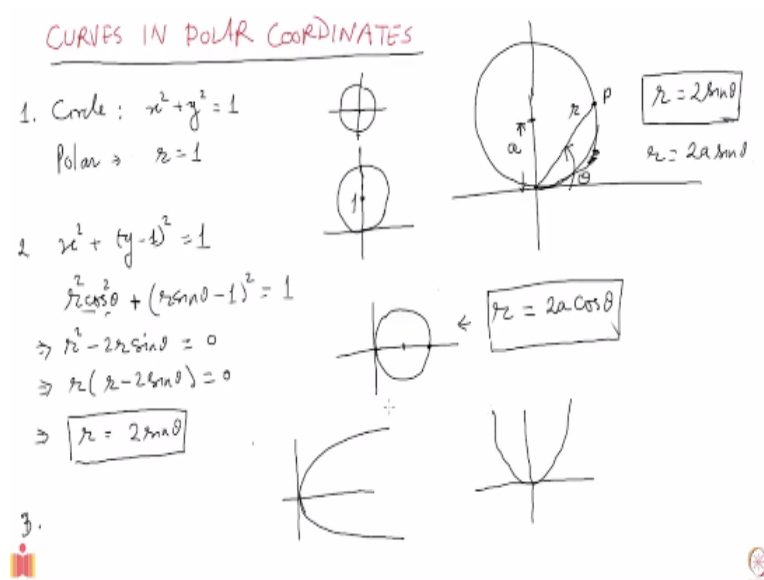 CURVES IN POLAR COORDINATES
1. Circle : x² + y² = 1
Polar → r = 1
2 x² + (y-1)² = 1
r²cos²θ + (r sinθ - 1)² = 1
⇒ r² - 2r sinθ = 0
⇒ r(r - 2 sinθ) = 0
⇒ r = 2 sinθ
3.
1
P
r
a
θ
r = 2 sinθ
r = 2a sinθ
← r = 2a cosθ